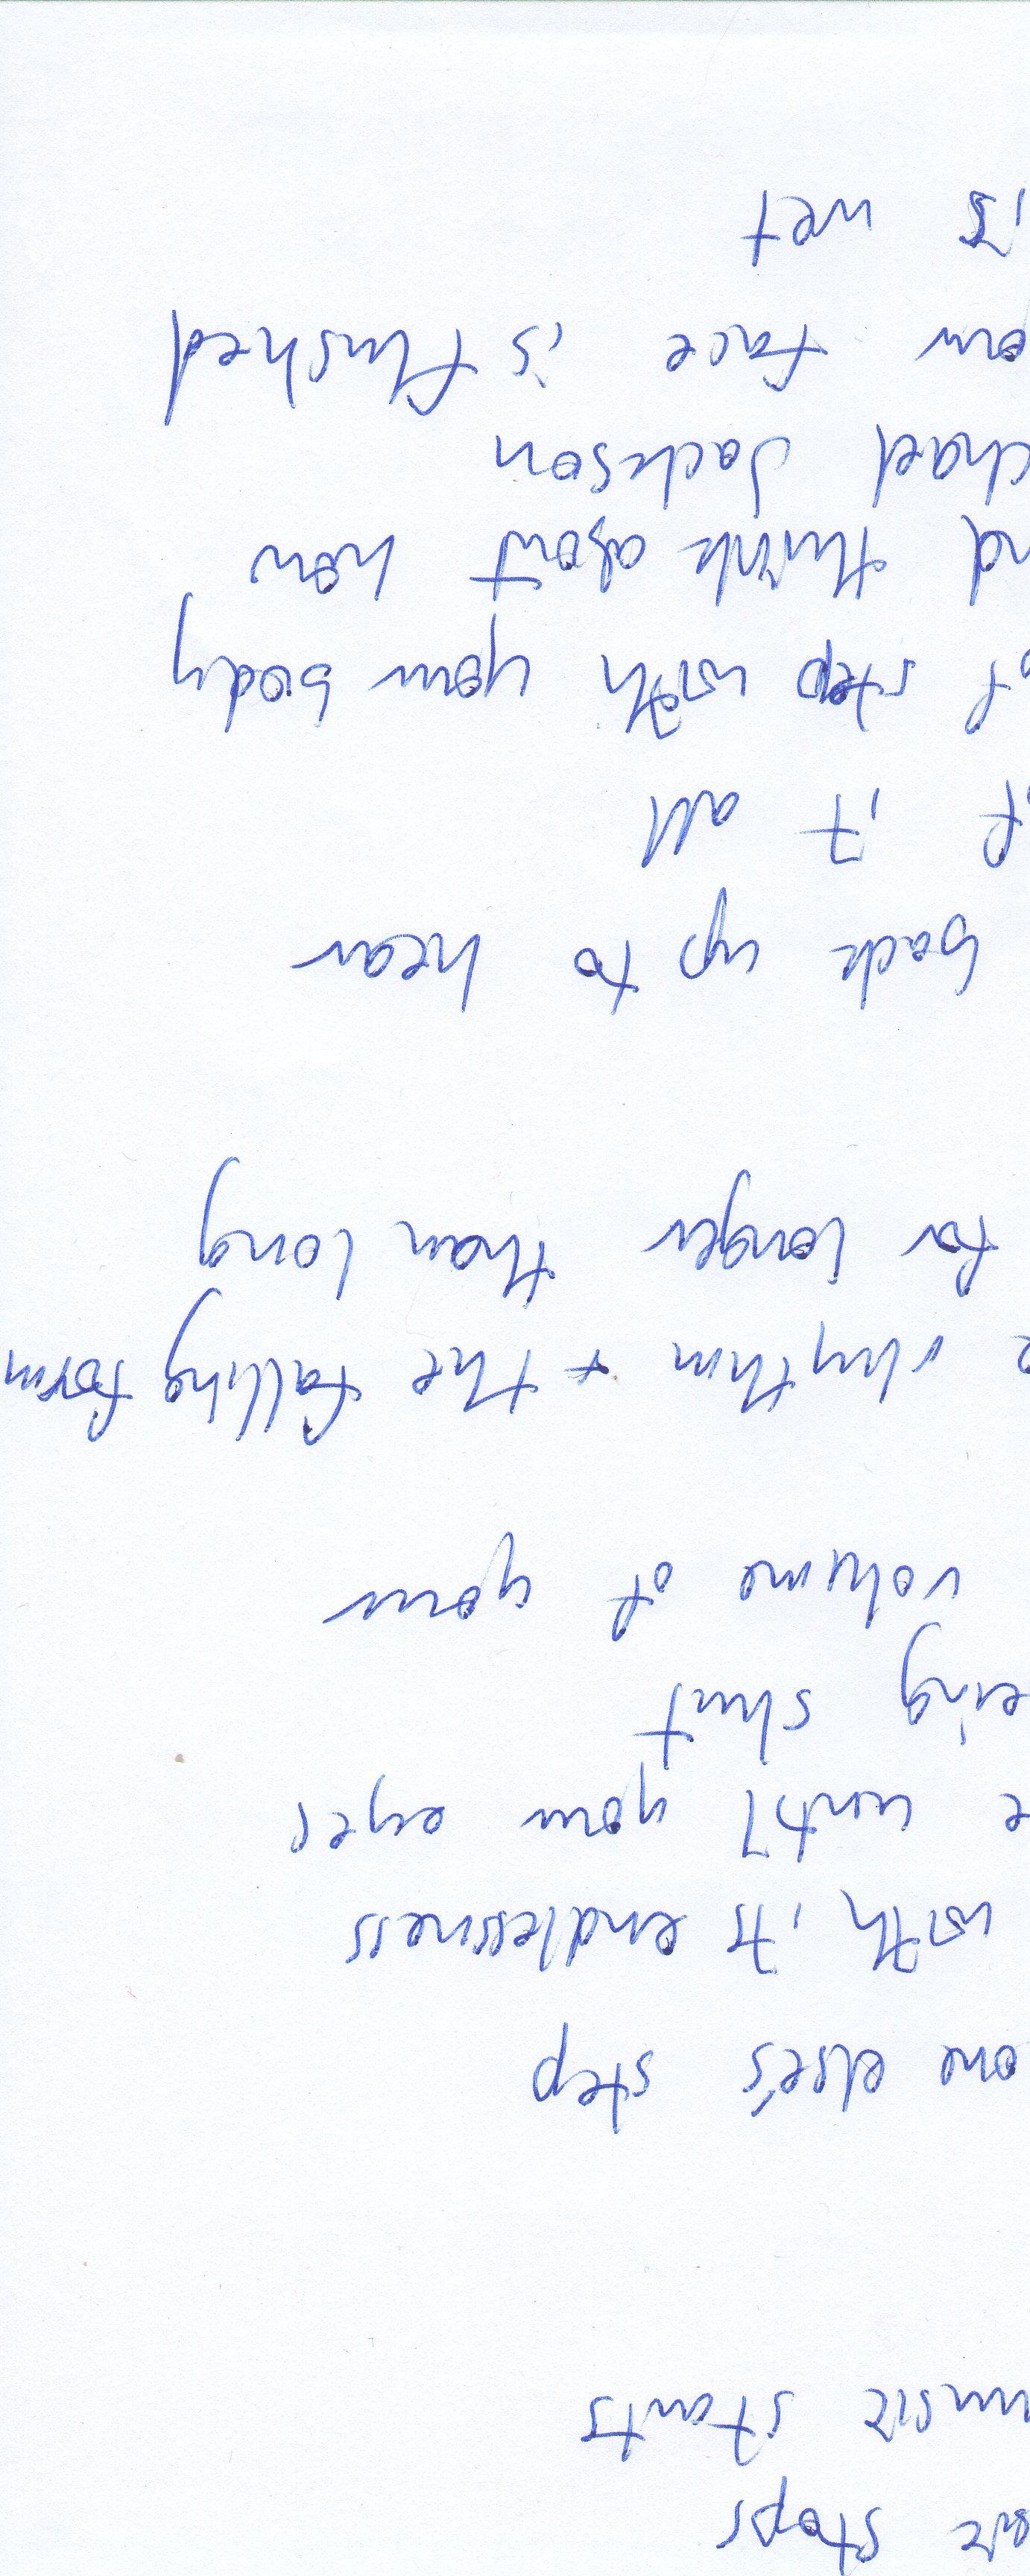 sic stops
music starts
one else's step
with its endlessness
e until your eyes
eing shut
volume of your
e rhythm + the falling form
for longer than long
back up to hear
of it all
of step with your body
nd think about how
chael Jackson
our face is flushed
is wet